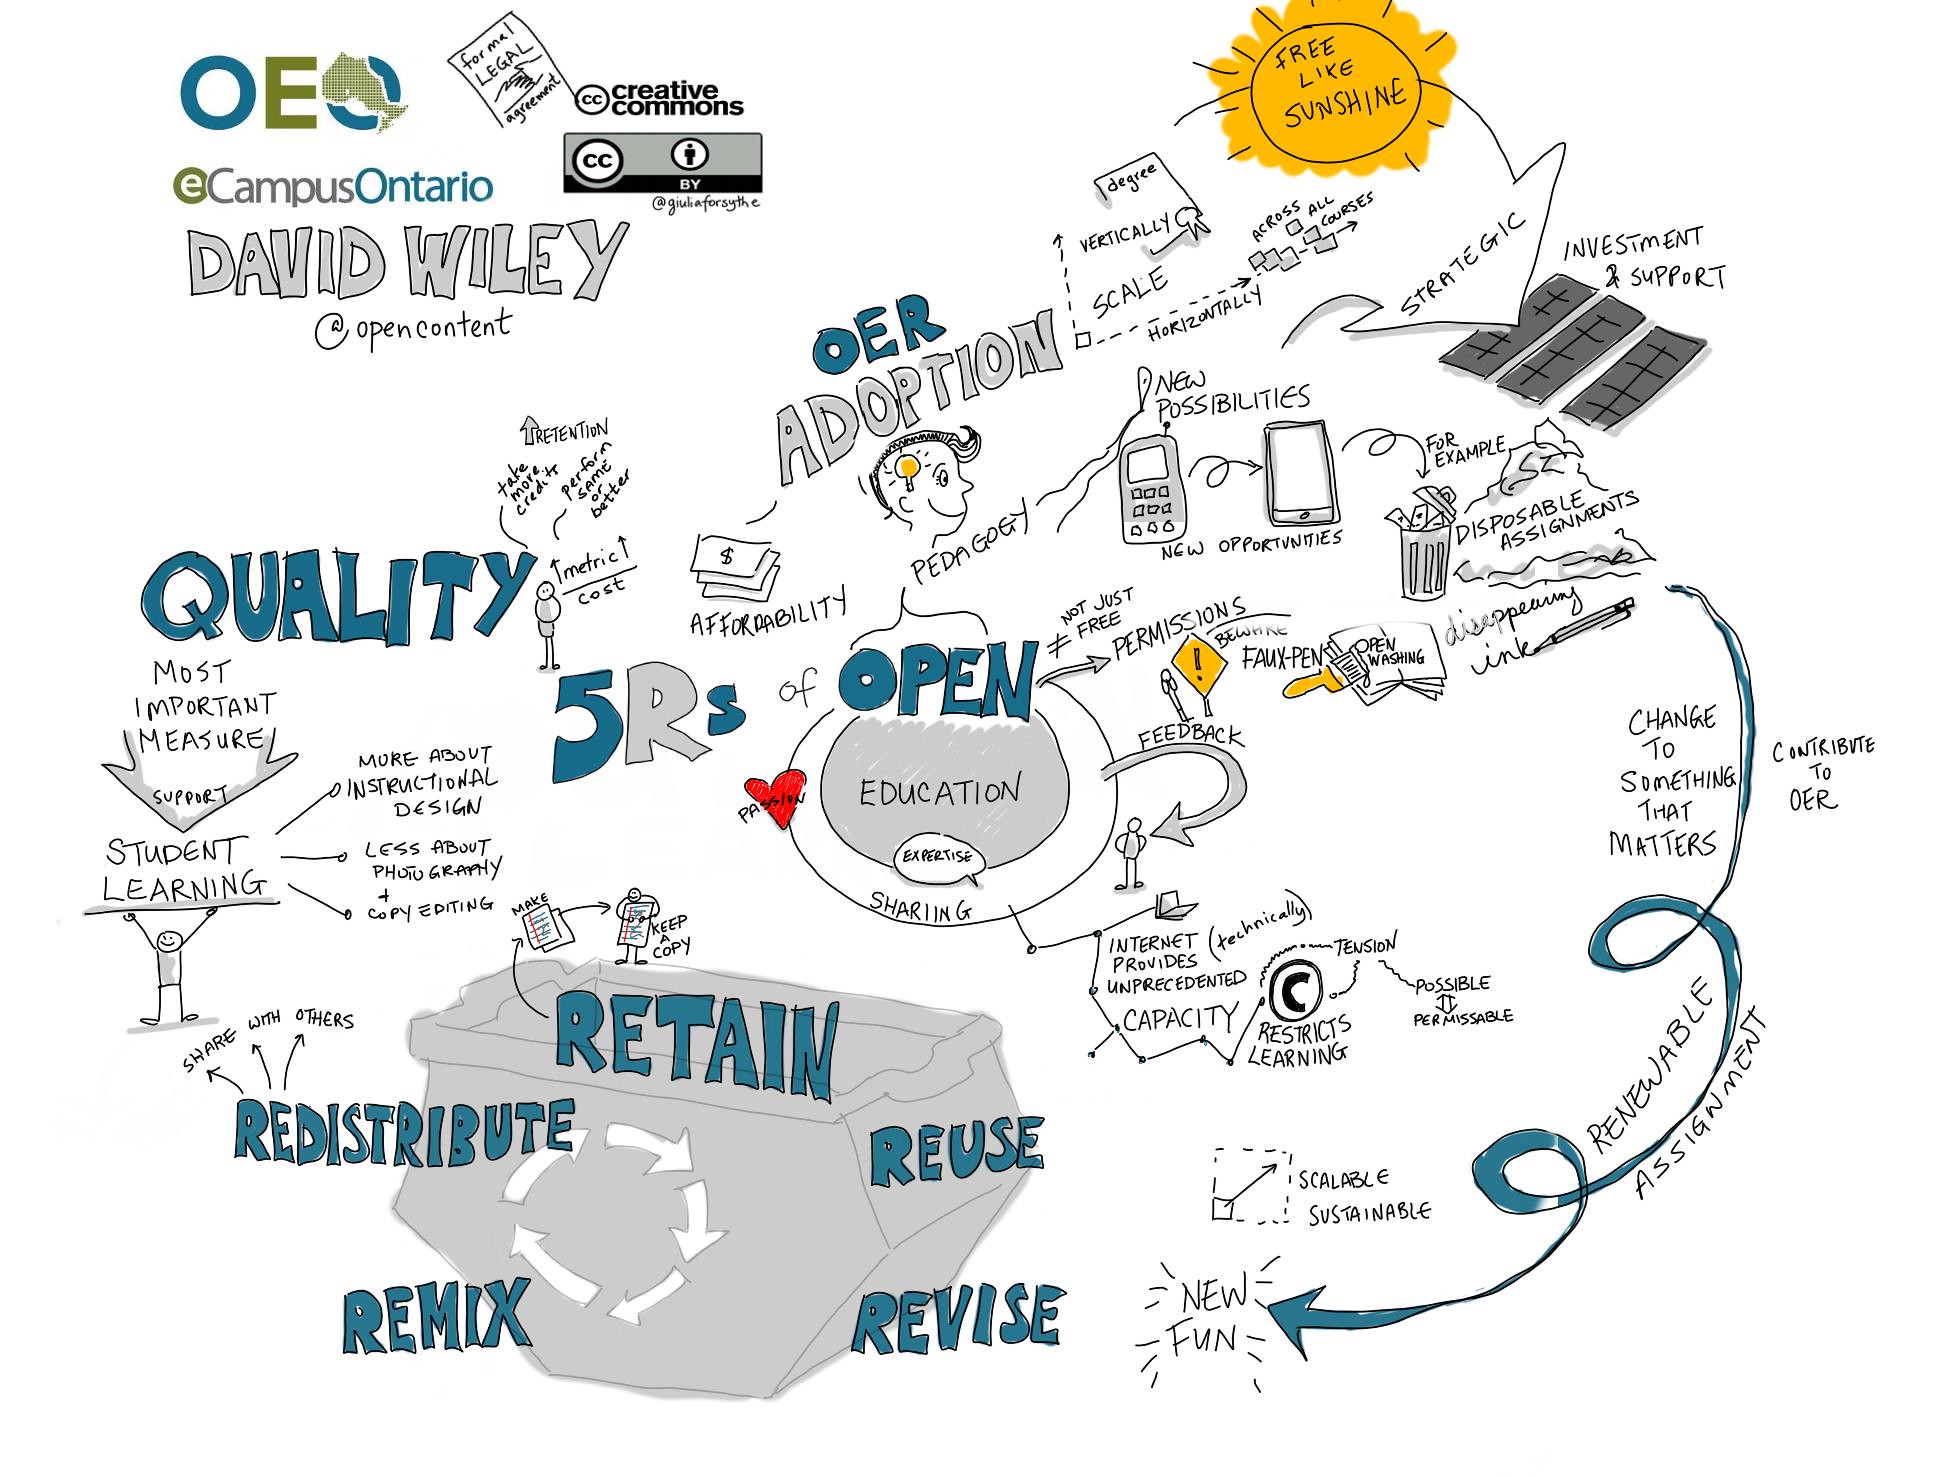 OEO
eCampusOntario
formal
LEGAL
agreement
cc creative
commons
cc
BY
@giuliaforsythe
DAVID WILEY
@opencontent
FREE
LIKE
SUNSHINE
STRATEGIC
INVESTMENT
& SUPPORT
degree
VERTICALLY
SCALE
HORIZONTALLY
ACROSS ALL
COURSES
OER
ADOPTION
AFFORDABILITY
$
PEDAGOGY
NEW
POSSIBILITIES
NEW OPPORTUNITIES
FOR
EXAMPLE
DISPOSABLE
ASSIGNMENTS
disappearing
ink
RETENTION
take
more
credits
perform
SAME
or
better
metric
cost
QUALITY
MOST
IMPORTANT
MEASURE
SUPPORT
STUDENT
LEARNING
MORE ABOUT
INSTRUCTIONAL
DESIGN
LESS ABOUT
PHOTOGRAPHY
+
COPY EDITING
5Rs of OPEN
EDUCATION
EXPERTISE
SHARIING
PASSION
≠ NOT JUST
FREE
PERMISSIONS
!
BEWARE
FAUX-PEN
OPEN
WASHING
FEEDBACK
INTERNET (technically)
PROVIDES
UNPRECEDENTED
CAPACITY
C
RESTRICTS
LEARNING
TENSION
POSSIBLE
PERMISSABLE
CHANGE
TO
SOMETHING
THAT
MATTERS
CONTRIBUTE
TO
OER
RENEWABLE
ASSIGNMENT
SCALABLE
SUSTAINABLE
NEW
FUN
MAKE
KEEP
A
COPY
RETAIN
SHARE WITH OTHERS
REDISTRIBUTE
REUSE
REMIX
REVISE